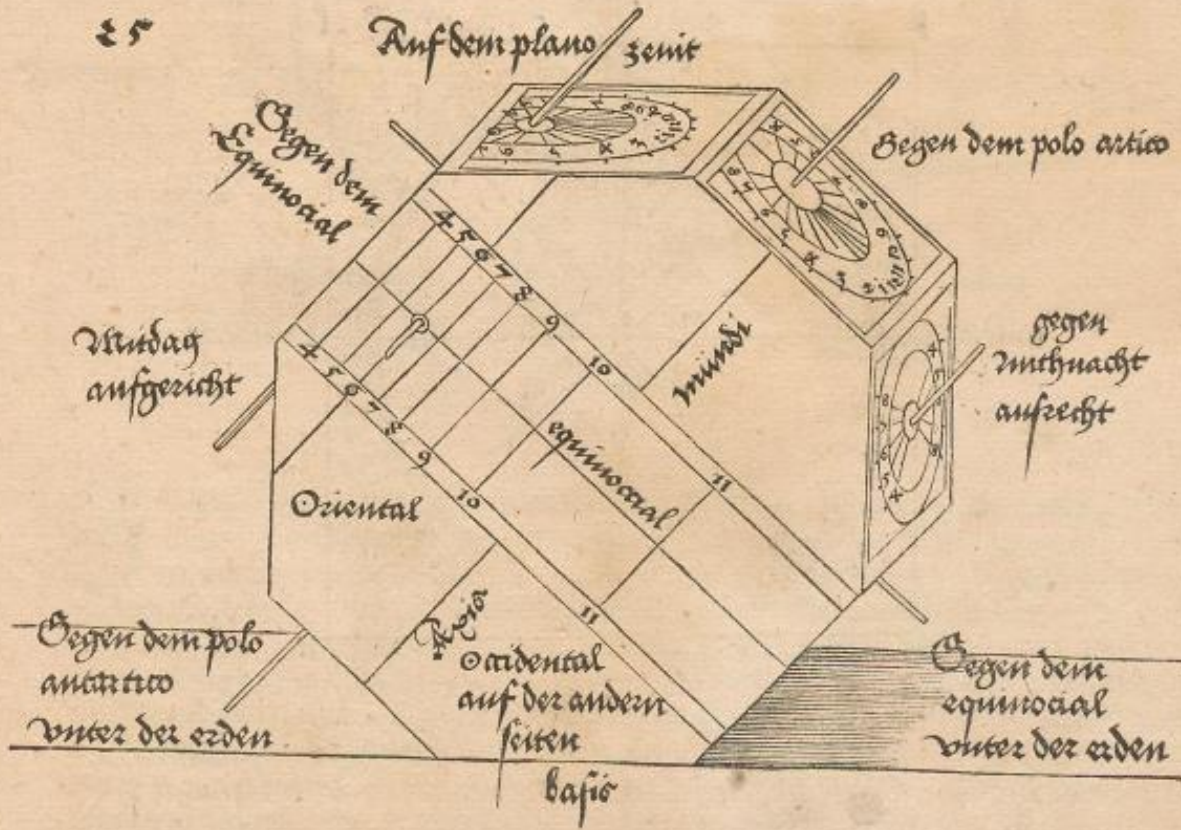 25
Auf dem plano zenit
Gegen dem
Equinocial
Gegen dem polo artico
Mitdag
aufgericht
gegen
mitnacht
aufrecht
4 5 6 7 8 9 10 11
mundi
equinoccial
4 5 6 7 8 9 10 11
Oriental
Axis
Gegen dem polo
antartico
vnter der erden
Occidental
auf der andern
seiten
Gegen dem
equinocial
vnter der erden
basis